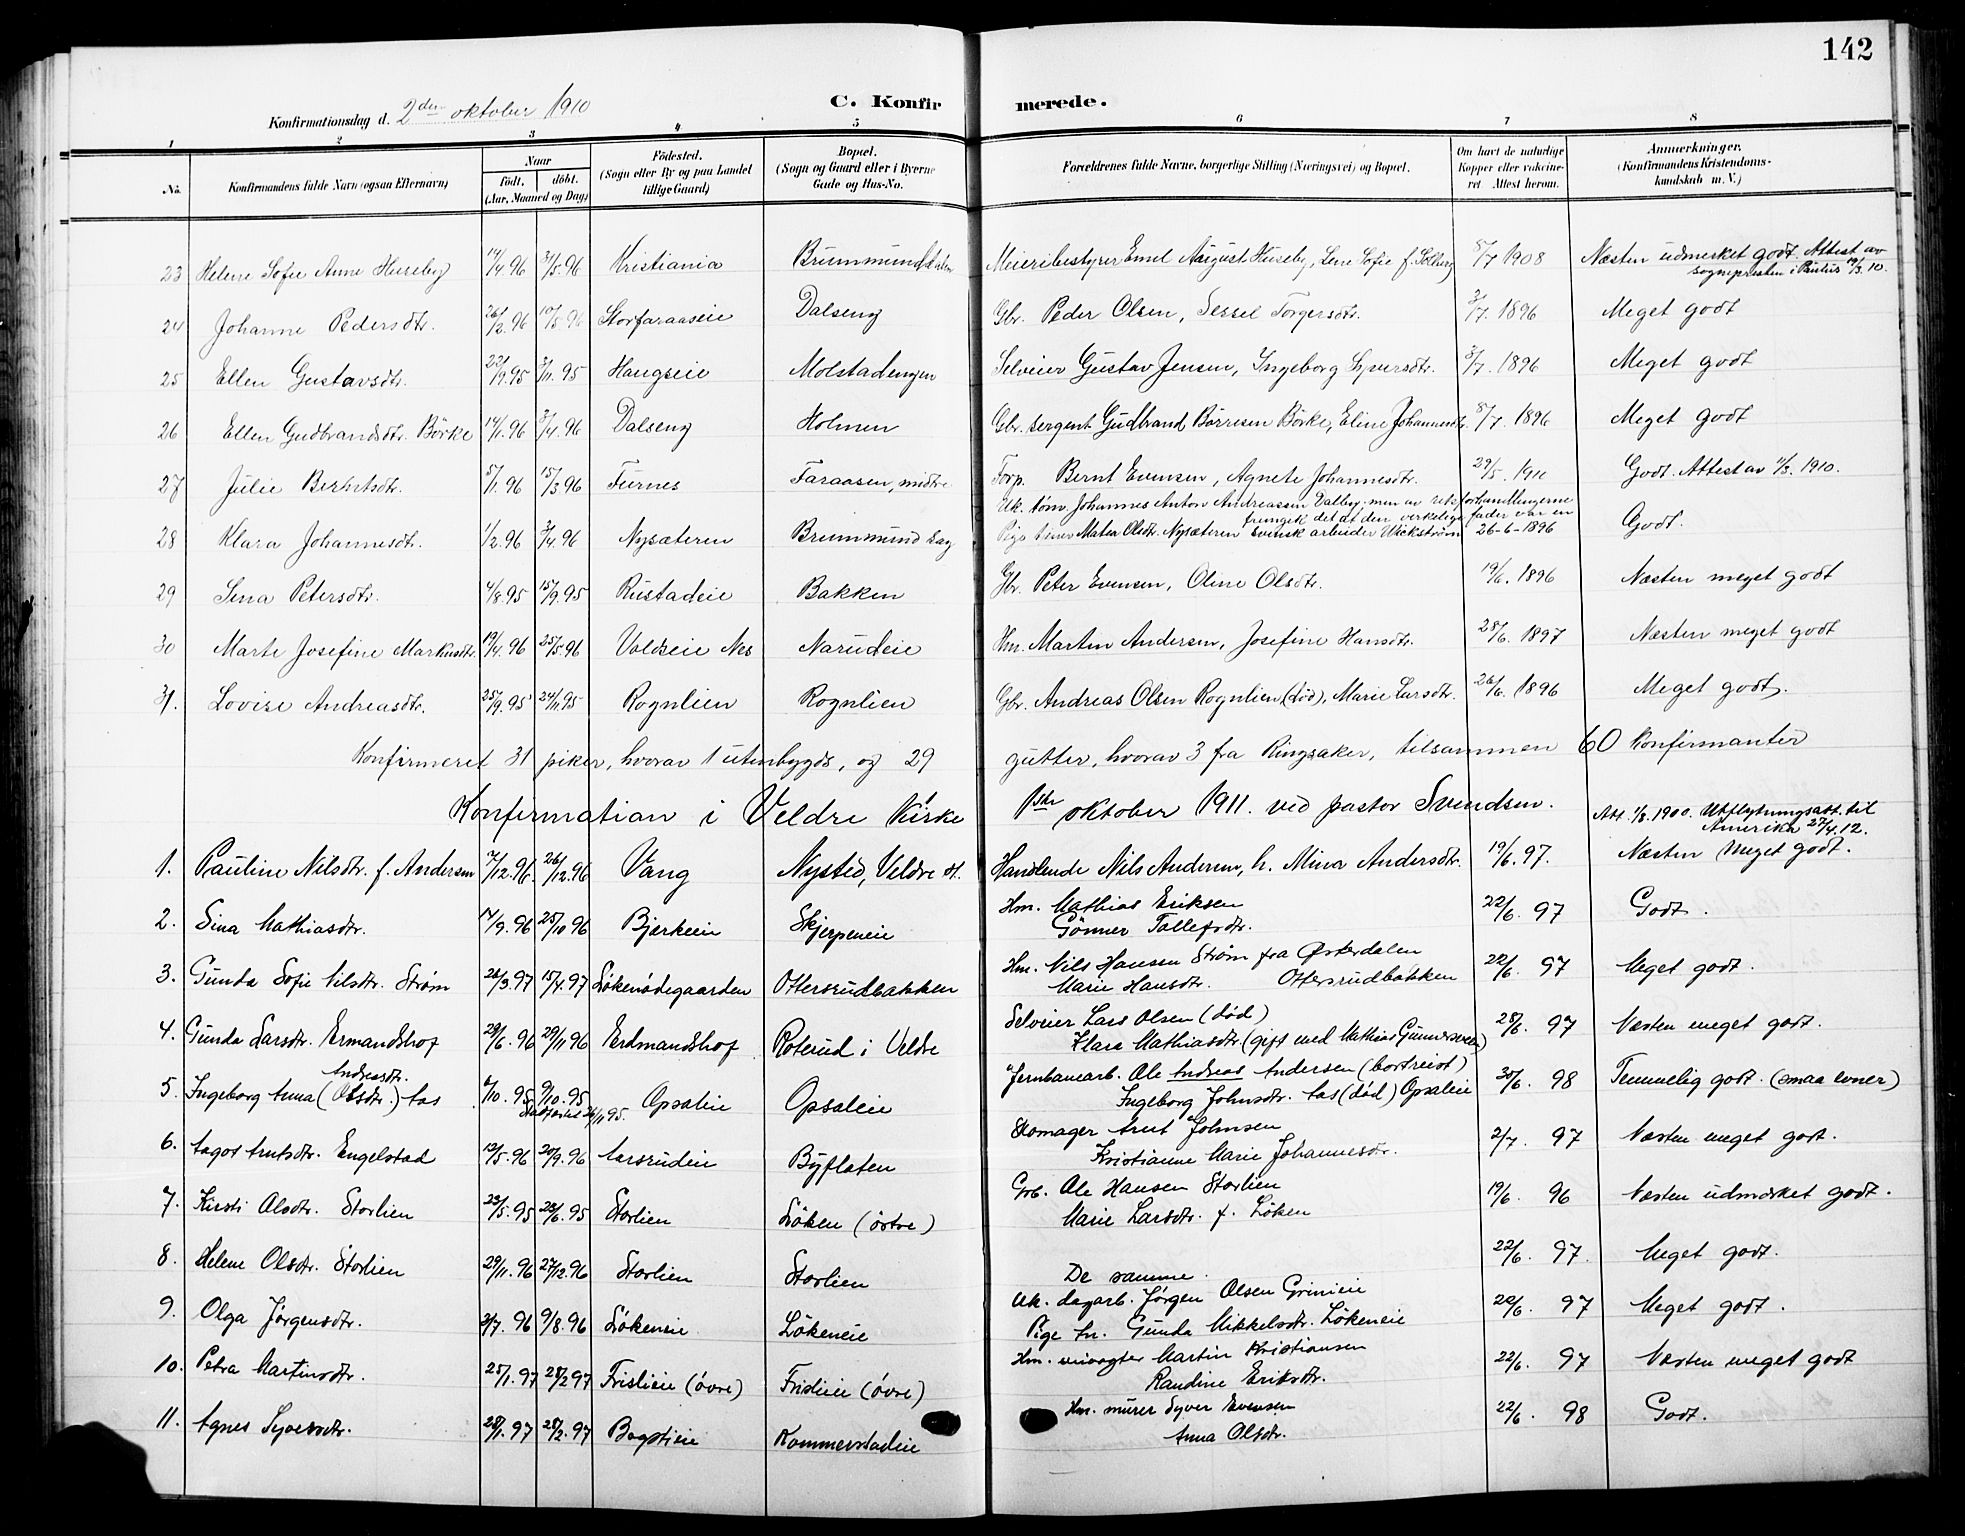 142
Konfirmationsdag d. 2den oktober 1910 C. Konfirmerede.
1 2 3 4 5 6 7 8
No. Konfirmandens fulde Navn (ogsaa Efternavn) Naar født, døbt. (Aar, Maaned og Dag) Fødested. (Sogn eller By og paa Landet tillige Gaard) Bopæl. (Sogn og Gaard eller i Byerne Gade og Hus-No. Forældrenes fulde Navne, borgerlige Stilling (Næringsvei) og Bopæl. Om havt de naturlige Kopper eller vakcineret Attest herom. Anmerkninger. (Konfirmandens Kristendomskundskab m. V.)
23 Helene Sofie Anne Huseby 14/4 96 31/5 96 Kristiania Brummunddalen Meieribestyrer Emil August Huseby, Lene Sofie f. Solberg 8/7 1908 Næsten udmerket godt. Attest av
sognepresten i 19/3 10.
24 Johanne Pedersdtr. 26/2 96 10/5 96 Storfaraaseie Dalseng Gbr. Peder Olsen, Sessel Torgersdtr. 3/7. 1896 Meget godt
25 Ellen Gustavsdtr. 22/9. 95 3/11. 95 Haugseie Molstadengen Selveier Gustav Jensen, Ingeborg Syversdtr. 3/7. 1896 Meget godt
26 Ellen Gudbrandsdtr. Børke 14/1. 96 3/4. 96 Dalseng Holmen Gbr. sergent Gudbrand Børresen Børke, Eline Johannesdtr. 8/7. 1896 Meget godt
27 Julie Berntsdtr. 5/1. 96 15/3 96 Furnes Faraasen, midtre Torp. Bernt Evensen, Agnete Johannesdtr. 29/5. 1911 Godt. Attest av 1/3. 1910.
28 Klara Johannesdtr. 1/2. 96 3/4. 96 Nysæteren Brummunddag Uk. tøm. Johannes Anton Andreassen Dalby, men av retsforhandlingerne
fremgik det at den virkelige fader var en
Pige Maten Olsdtr. Nysæteren svensk arbeider Wickstrøm 26-6-1896 Godt.
29 Sina Petersdtr. 4/8. 95 15/9. 95 Rustadeie Bakken Gbr. Peter Evensen, Oline Olsdtr. 19/6. 1896 Næsten meget godt
30 Marte Josefine Markusdtr. 19/4. 96 25/5. 96 Voldseie Nes Narudeie Hm. Martin Andersen, Josefine Hansdtr. 28/6. 1897 Næsten meget godt
31. Lovise Andreasdtr. 25/9. 95 24/11. 95 Rognlien Rognlien Gbr. Andreas Olsen Rognlien (død), Marie Larsdtr. 26/6. 1896 Meget godt.
Konfirmeret 31 piker, hvorav 1 utenbygds, og 29 gutter, hvorav 3 fra Ringsaker, tilsammen 60 konfirmanter
Konfirmation i Veldre Kirke 1ste oktober 1911. ved pastor Svendsen.
Att. 1/8. 1900. Utflytningsatt. til
Amerika 27/4. 12.
1. Pauline Nilsdtr. f. Andersen 7/12. 96. 26/12. 96 Vang Nysted, Veldre Handlende Nils Andersen, h. Mina Andersdtr. 19/6. 97. Næsten meget godt.
2. Sina Mathiasdtr. 14/9. 96 25/10 96 Bjerkeie Skjerpeneie Hm. Mathias Eriksen
Gønner Tollefsdtr. 22/6. 97 Godt.
3. Gunda Sofie Nilsdtr. Strøm 26/3. 97 15/4. 97 Løkenødegaarden Ottersrudbakken Hm. Nils Hansen Strøm fra Østerdalen
Marie Hansdtr. Ottersrudbakken 22/6. 97 Meget godt.
4. Gunda Larsdtr. Ermandshof 29/6. 96 29/11 96 Erdmandshof Roterud i Veldre Selveier Lars Olsen (død)
Klara Mathiasdtr (gift med Mathias Gunnersveen) 25/6. 97 Næsten meget godt.
Andreasdtr.
5. Ingeborg Anna (Olsdtr.) Aas 6/10. 95 9/10. 95 Stadfæstet 24/11 95. Opsaleie Opsaleie Jernbanearb. Ole Andreas Andersen (bortreist)
Ingeborg Johnsdtr. Aas (død) Opsaleie 30/6. 98 Temmelig godt. (smaa evner)
6. Aagot Arntsdtr. Engelstad 12/5. 96 20/9. 96 Aarsrudeie Byflaten Skomager Arnt Johnsen
Kristianne Marie Johannesdtr. 2/7. 97 Næsten meget godt.
7. Kirsti Olsdtr. Storlien 23/5. 95 23/6. 95 Storlien Løken (østre) Grb. Ole Hansen Storlien
Marie Larsdtr. f. Løken 19/6. 96 Næsten udmerket godt.
8. Helene Olsdtr. Storlien 29/11. 96 27/12. 96 Storlien Storlien De samme. 22/6. 97. Meget godt.
9. Olga Jørgensdtr. 2/7. 96 9/8. 96 Løkeneie Løkeneie Uk. dagarb. Jørgen Olsen Grinieie
Pige tn. Gunda Mikkelsdtr. Løkeneie 22/6. 97 Meget godt.
10. Petra Martinsdtr. 25/1. 97 28/2 97 Frislieie (øvre) Frislieie (øvre) Hm. veivogter Martin Kristiansen
Randine Eriksdtr. 22/6. 97 Næsten meget godt
11. Agnes Syversdtr. 28/1. 97 28/2. 97 Bogstieie Kommerstadeie Hm. murer Syver Evensen
Anna Olsdtr. 22/6. 98 Godt.